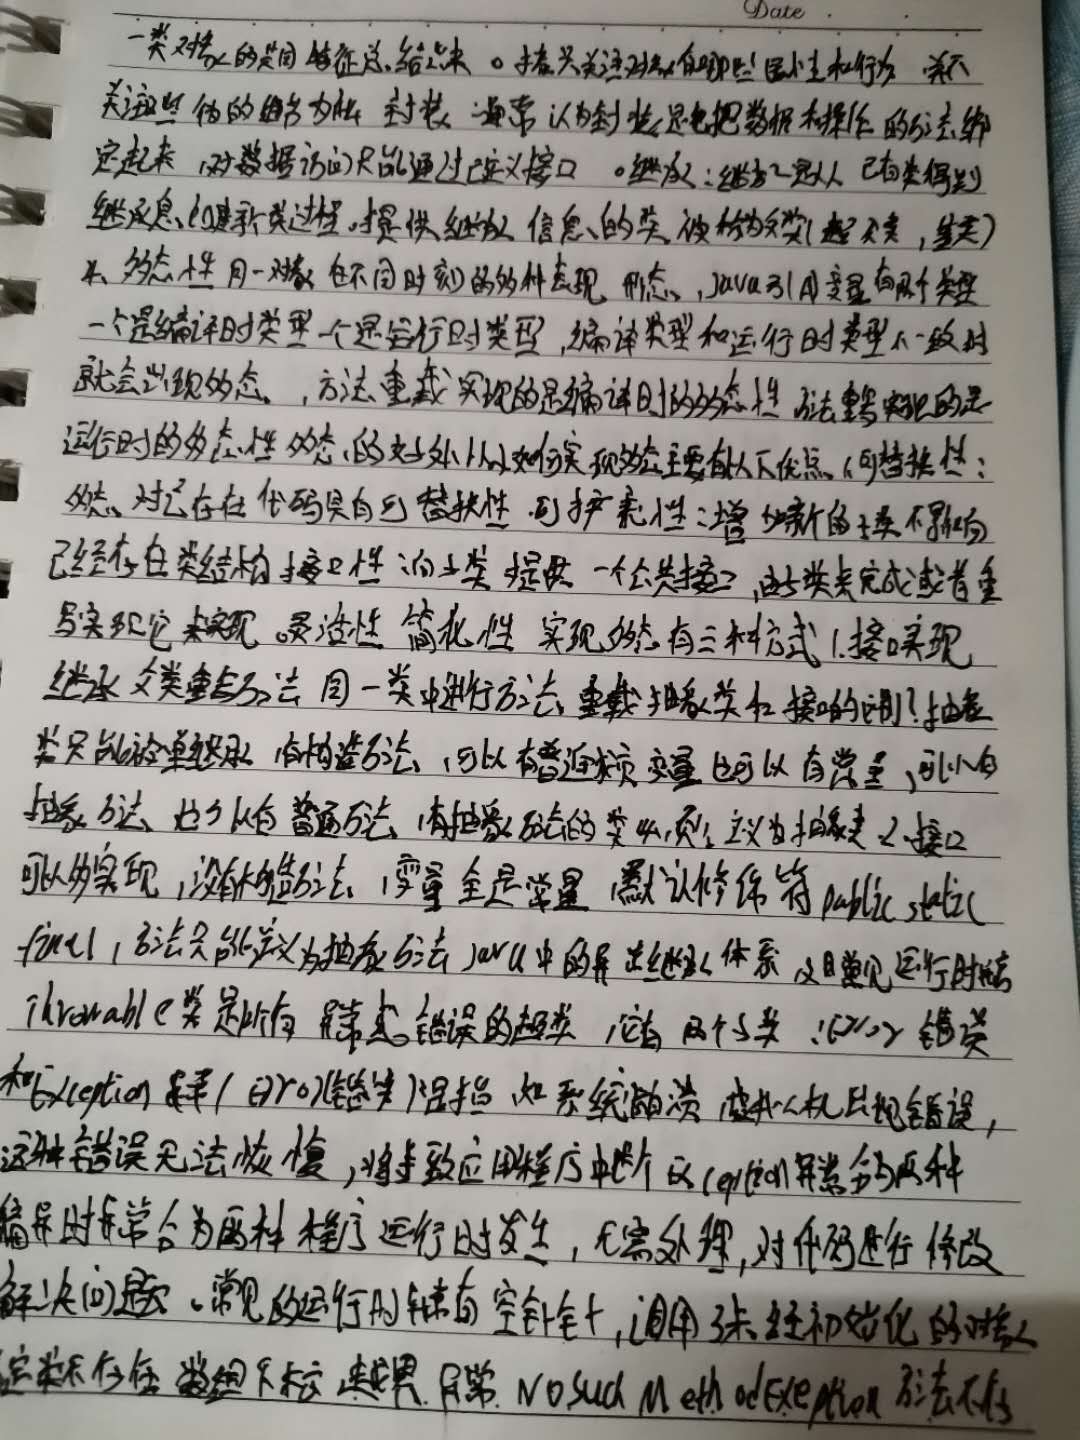 Date
一类对象的共同特征总结出来。抽象只关注对象有哪些属性和行为 并不
关注这些行为的细节为啥 封装 通常认为封装是把数据和操作的方法绑
定起来,对数据访问只能通过已定义接口 。继承:继承是从已有类得到
继承息,创建新类过程。提供继承信息的类被称为父类(超类,基类)
多态性 同一对象在不同时刻的多种表现形态,Java引用变量有两个类型
一个是编译时类型一个是运行时类型,编译类型和运行时类型不一致时
就会出现多态,方法重载实现的是编译时的多态性 方法重写实现的是
运行时的多态性 多态的好处 如何实现多态主要有以下优点 1可替换性:
多态对已存在代码具有可替换性 可扩充性:增加新的子类不影响
已经存在类结构 接口性:向子类提供一个公共接口,由子类来完成或者重
写实现它来实现。灵活性 简化性 实现多态有三种方式 1.接口实现
继承父类重写方法 同一类中进行方法重载 抽象类和接口的区别?抽象
类只能被单继承,有构造方法,可以有普通成员变量也可以有常量,可以有
抽象方法、也可以有普通方法,有抽象方法的类必须定义为抽象类 2.接口
可以多实现,没有构造方法,变量全是常量,默认修饰符public static
final,方法只能定义为抽象方法 Java中的异常继承体系 以及常见运行时
Throwable类是所有异常和错误的超类,它有两个子类:Error错误
和Exception异常(Error(错误)是指 如系统崩溃 虚拟机出现错误,
这种错误无法恢复,将导致应用程序中断 ception异常分为两种
编异时异常分为两种 程序运行时发生,无需处理,对代码进行修改
解决问题。常见的运行时异常有 空针针,调用了未经初始化的对象
类不存在 数组下标越界 异常 NoSuchMethodExeption 方法不存